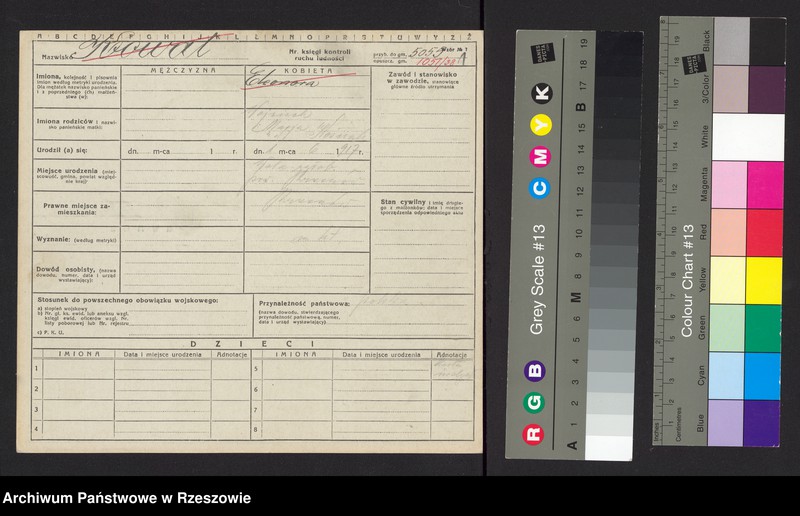 A B C D E F G H I J K L Ł M N O P R S T U W Y Z Ż
Nazwisko Kowal
Nr. księgi kontroli
ruchu ludności
przyb. do gm. 5055
opuszcz. gm. 1051/38
Wzór № 1
Imiona, kolejność i pisownia
imion według metryki urodzenia.
Dla mężatek nazwisko panieńskie
i z poprzedniego (ch) małżeń-
stwa (w):
MĘŻCZYZNA
KOBIETA
Eleonora
Zawód i stanowisko
w zawodzie, stanowiące
główne źródło utrzymania
Imiona rodziców i nazwi-
sko panieńskie matki:
Urodził (a) się:
dn. m-ca 1 r.
dn. m-ca 6 1917 r.
Miejsce urodzenia (miej-
scowość, gmina, powiat wzglę-
dnie kraj)
Prawne miejsce za-
mieszkania:
Stan cywilny i imię drugie-
go z małżonków; data i miejsce
sporządzenia odpowiedniego aktu
Wyznanie: (według metryki)
Dowód osobisty, (nazwa
dowodu, numer, data i urząd
wystawiający)
Stosunek do powszechnego obowiązku wojskowego:
a) stopień wojskowy
b) Nr. gł. ks. ewid. lub aneksu wzgl.
księgi ewid. oficerów wzgl. Nr.
listy poborowej lub Nr. rejestru
c) P. K. U.
Przynależność państwowa:
(nazwa dowodu, stwierdzającego
przynależność państwową, numer,
data i urząd wystawiający)
DZIECI
IMIONA Data i miejsce urodzenia Adnotacje IMIONA Data i miejsce urodzenia Adnotacje
1 5
2 6
3 7
4 8
Grey Scale #13
R G B C M Y K
A 1 2 3 4 5 6 M 8 9 10 11 12 13 14 15 B 17 18 19
DANES
PICTA
Colour Chart #13
Blue Cyan Green Yellow Red Magenta White 3/Color Black
Inches
Centimetres
Archiwum Państwowe w Rzeszowie